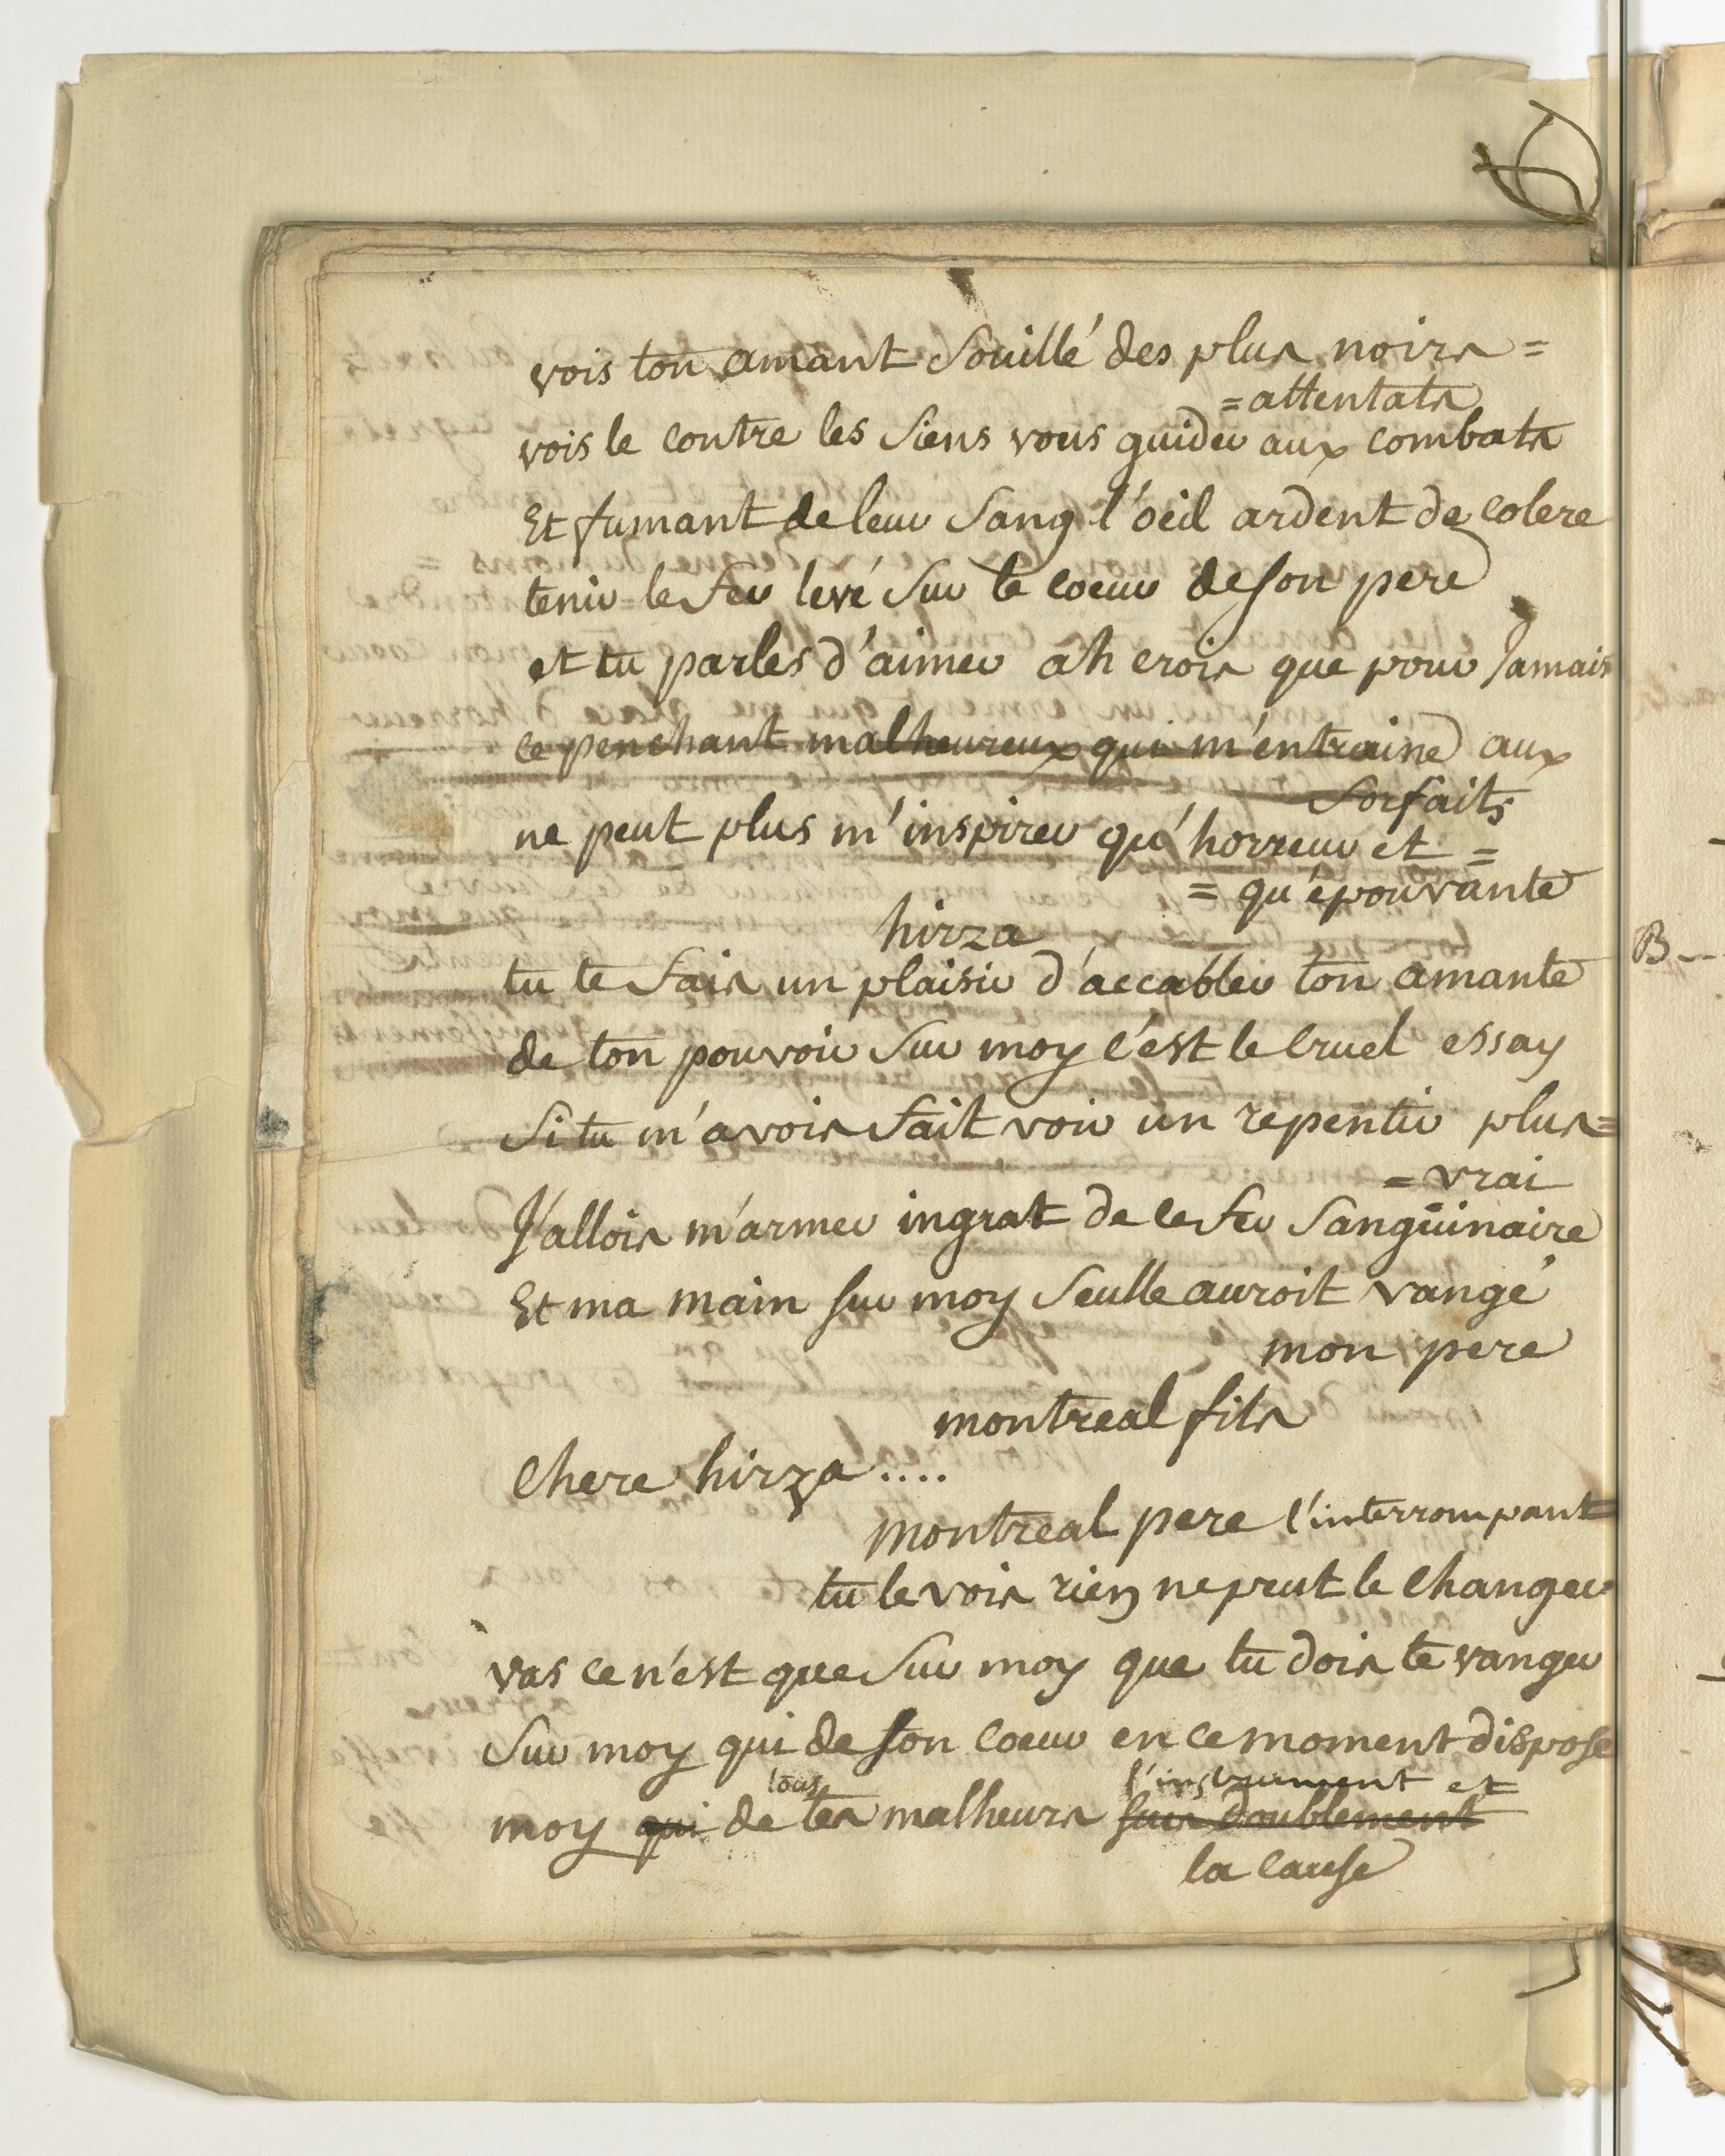 vois ton amant souillé des plus noirs =
= attentats
vois le contre les siens vous guider aux combats
Et fumant de leur sang l'oeil ardent de colere
tenir le fer levé sur le coeur de son pere
et tu parles d'aimer ah crois que pour Jamais
ce penchant malheureux qui m'entraine aux
forfaits
ne peut plus m'inspirer qu'horreur et =
= qu'épouvante
hirza
tu te fais un plaisir d'accabler ton amante
de ton pouvoir sur moy c'est le cruel essay
si tu m'avois fait voir un repentir plus =
= vrai
J'allois m'armer ingrat de ce fer sangüinaire
Et ma main sur moy seulle auroit vangé
mon pere
montreal fils
chere hirza ....
montreal pere l'interrompant
tu le vois rien ne peut le changer
vas ce n'est que sur moy que tu dois te vanger
sur moy qui de son coeur en ce moment dispose
tous l'instrument et
moy qui de tes malheurs suis doublement
la cause
B --